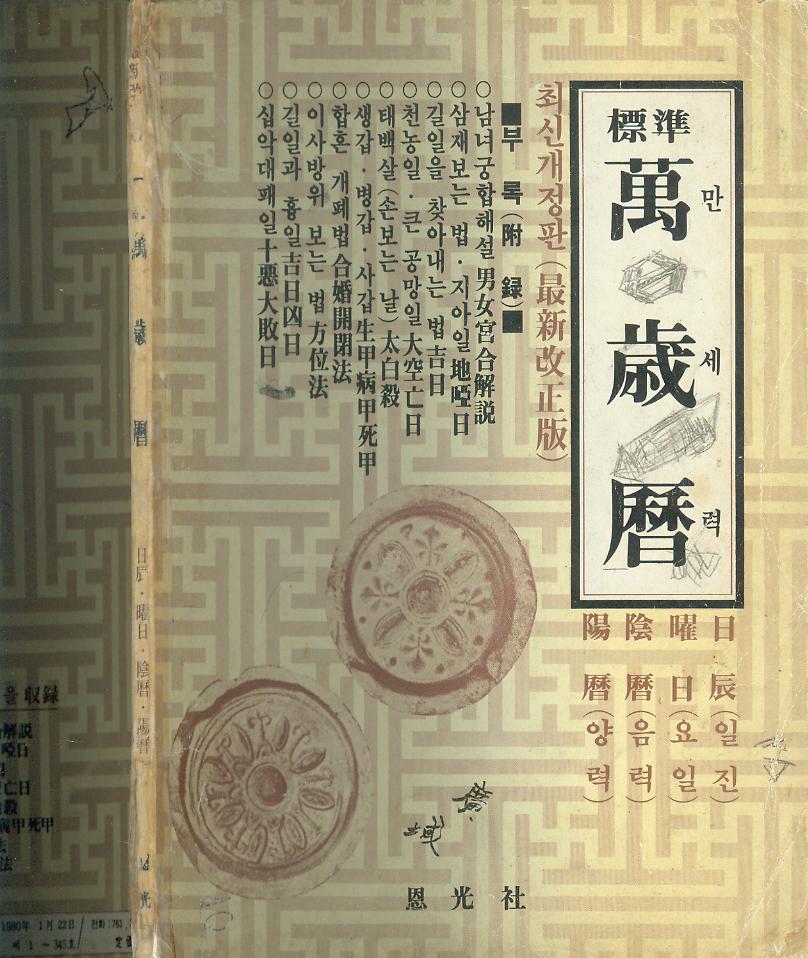 標準
萬歲曆
만세력
日辰(일진)
曜日(요일)
陰曆(음력)
陽曆(양력)
최신개정판(最新改正版)
■부 록(附 録)■
○남녀궁합해설 男女宮合解説
○삼재보는 법·지아일地啞日
○길일을 찾아내는 법吉日
○천농일·큰 공망일大空亡日
○태백살(손보는 날)太白殺
○생갑·병갑·사갑生甲病甲死甲
○합혼 개폐법合婚開閉法
○이사방위 보는 법方位法
○길일과 흉일吉日凶日
○십악대패일十惡大敗日
恩光社
萬歲曆
日辰·曜日·陰曆·陽曆
을 収録
解説
啞日
亡日
殺
病甲死甲
法
法
1980年 1月 22日
전화 763
제 1～345호
定價